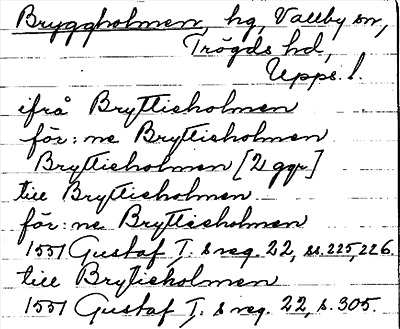 Bryggholmen, hg, Vallby sn,
Trögds hd,
Upps. l.
ifrå Bryttieholmen
för:ne Bryttieholmen
Bryttieholmen [2 ggr]
till Bryttieholmen
för:ne Bryttieholmen
1551 Gustaf I.s reg. 22, ss. 225, 226.
till Brytieholmen
1551 Gustaf I.s reg. 22, s. 305.